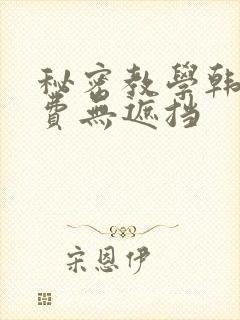 秘密教學韩
費無遮挡
宋恩伊